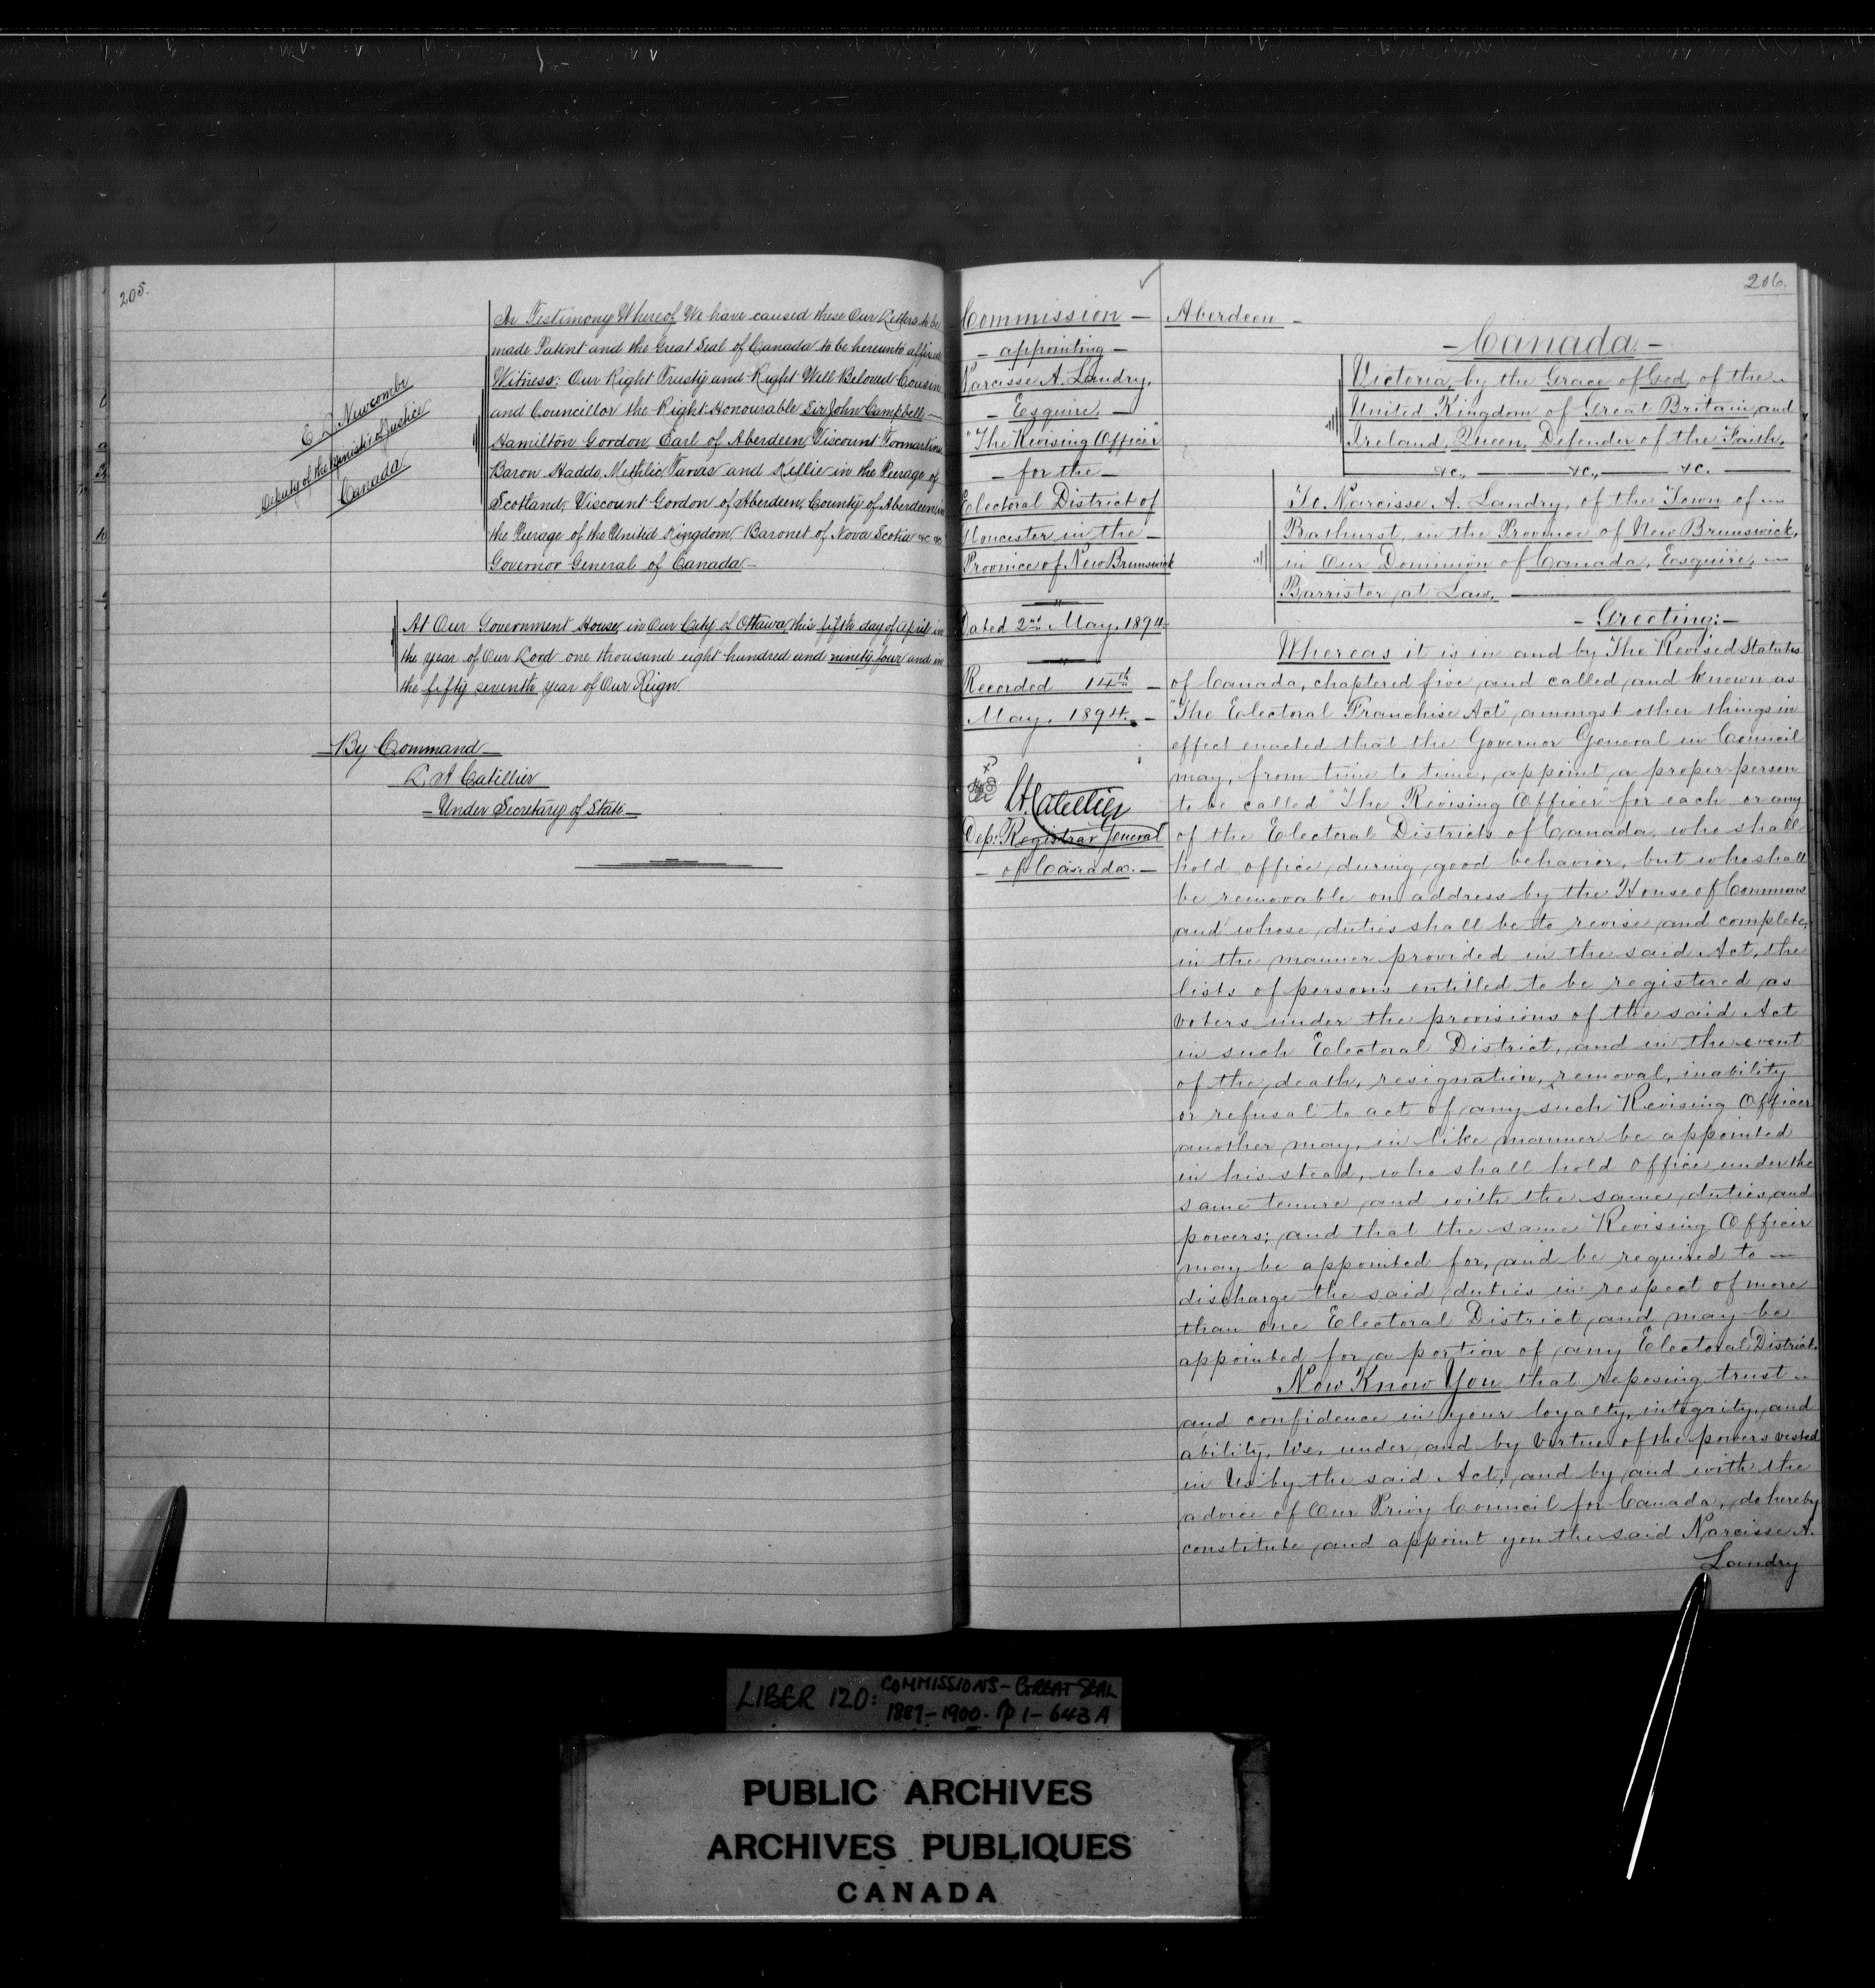 205.
In Testimony Whereof We have caused these Our Letters to be
made Patent and the Great Seal of Canada to be hereunto affixed
Witness: Our Right Trusty and Right Well Beloved Cousin
and Councillor the Right Honourable Sir John Campbell
Hamilton Gordon, Earl of Aberdeen, Viscount Formartine
Baron Haddo, Methlic, Tarves and Kellie in the Peerage of
Scotland, Viscount Gordon of Aberdeen, County of Aberdeen in
the Peerage of the United Kingdom, Baronet of Nova Scotia &c &c
Governor General of Canada
E L Newcombe
Deputy of the Minister of Justice
Canada
At Our Government House, in Our City of Ottawa, this fifth day of April in
the year of Our Lord one thousand eight hundred and ninety four and in
the fifty seventh year of Our Reign.
By Command
L. A Catellier
Under Secretary of State
206.
Commission
appointing
Narcisse A. Landry,
Esquire,
"The Revising Officer"
for the
Electoral District of
Gloucester in the
Province of New Brunswick
Dated 2nd May, 1894.
Recorded 14th
May, 1894.
L. A. Catellier
Dep: Registrar General
of Canada.
Aberdeen
Canada
Victoria, by the Grace of God, of the
United Kingdom of Great Britain and
Ireland, Queen, Defender of the Faith,
&c., &c., &c.
To Narcisse A. Landry, of the Town of
Bathurst, in the Province of New Brunswick,
in Our Dominion of Canada, Esquire,
Barrister at Law,
Greeting:
Whereas it is in and by The Revised Statutes
of Canada, chaptered five, and called and known as
"The Electoral Franchise Act", amongst other things in
effect enacted that the Governor General in Council
may, from time to time, appoint a proper person
to be called "The Revising Officer" for each or any
of the Electoral Districts of Canada, who shall
hold office during good behavior, but who shall
be removable on address by the House of Commons
and whose duties shall be to revise and complete,
in the manner provided in the said Act, the
lists of persons entitled to be registered as
voters under the provisions of the said Act
in such Electoral District, and in the event
of the death, resignation, removal, inability
or refusal to act of any such Revising Officer
another may, in like manner be appointed
in his stead, who shall hold office under the
same tenure and with the same duties and
powers; and that the same Revising Officer
may be appointed for, and be required to
discharge the said duties in respect of more
than one Electoral District, and may be
appointed for a portion of any Electoral District.
Now Know You that reposing trust
and confidence in your loyalty, integrity, and
ability, We, under and by virtue of the powers vested
in Us by the said Act, and by and with the
advice of Our Privy Council for Canada, do hereby
constitute and appoint you the said Narcisse A.
Landry
LIBER 120: COMMISSIONS - GREAT SEAL
1887-1900. pp 1-643A
PUBLIC ARCHIVES
ARCHIVES PUBLIQUES
CANADA